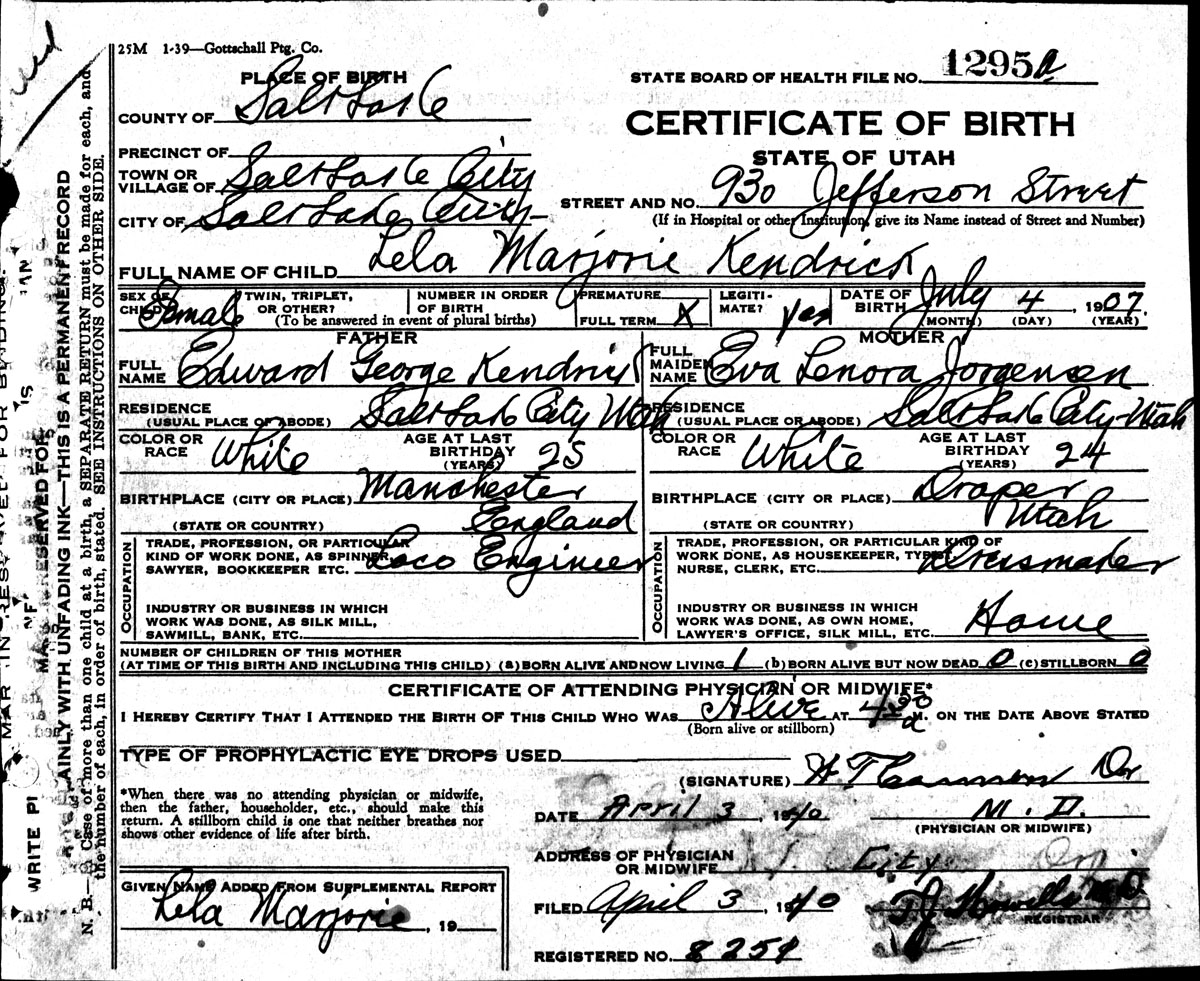 25M 1-39—Gottschall Ptg. Co.
PLACE OF BIRTH
STATE BOARD OF HEALTH FILE NO. 1295a
COUNTY OF Salt Lake
CERTIFICATE OF BIRTH
PRECINCT OF
STATE OF UTAH
TOWN OR VILLAGE OF Salt Lake City
STREET AND NO. 930 Jefferson Street
CITY OF Salt Lake City
(If in Hospital or other Institution, give its Name instead of Street and Number)
FULL NAME OF CHILD Lela Marjorie Kendrick
SEX OF CHILD Female TWIN, TRIPLET, OR OTHER? NUMBER IN ORDER OF BIRTH (To be answered in event of plural births) PREMATURE FULL TERM X LEGITI- MATE? Yes DATE OF BIRTH July 4, 1907.
(MONTH) (DAY) (YEAR)
FATHER
FULL NAME Edward George Kendrick
RESIDENCE (USUAL PLACE OF ABODE) Salt Lake City Utah
COLOR OR RACE White AGE AT LAST BIRTHDAY (YEARS) 25
BIRTHPLACE (CITY OR PLACE) Manchester
(STATE OR COUNTRY) England
OCCUPATION
TRADE, PROFESSION, OR PARTICULAR
KIND OF WORK DONE, AS SPINNER,
SAWYER, BOOKKEEPER ETC. Loco Engineer
INDUSTRY OR BUSINESS IN WHICH
WORK WAS DONE, AS SILK MILL,
SAWMILL, BANK, ETC.
MOTHER
FULL MAIDEN NAME Eva Lenora Jorgensen
RESIDENCE (USUAL PLACE OR ABODE) Salt Lake City-Utah
COLOR OR RACE White AGE AT LAST BIRTHDAY (YEARS) 24
BIRTHPLACE (CITY OR PLACE) Draper
(STATE OR COUNTRY) Utah
OCCUPATION
TRADE, PROFESSION, OR PARTICULAR KIND OF
WORK DONE, AS HOUSEKEEPER, TYPIST,
NURSE, CLERK, ETC. Dressmaker
INDUSTRY OR BUSINESS IN WHICH
WORK WAS DONE, AS OWN HOME,
LAWYER'S OFFICE, SILK MILL, ETC. Home
NUMBER OF CHILDREN OF THIS MOTHER
(AT TIME OF THIS BIRTH AND INCLUDING THIS CHILD) (a) BORN ALIVE AND NOW LIVING 1 (b) BORN ALIVE BUT NOW DEAD 0 (c) STILLBORN 0
CERTIFICATE OF ATTENDING PHYSICIAN OR MIDWIFE*
I HEREBY CERTIFY THAT I ATTENDED THE BIRTH OF THIS CHILD WHO WAS Alive AT 4 30 a M. ON THE DATE ABOVE STATED
(Born alive or stillborn)
TYPE OF PROPHYLACTIC EYE DROPS USED
(SIGNATURE)
*When there was no attending physician or midwife,
then the father, householder, etc., should make this
return. A stillborn child is one that neither breathes nor
shows other evidence of life after birth.
DATE April 3, 1940 M. D.
(PHYSICIAN OR MIDWIFE)
ADDRESS OF PHYSICIAN OR MIDWIFE City
GIVEN NAME ADDED FROM SUPPLEMENTAL REPORT
Lela Marjorie, 19
FILED April 3, 1940 T J Howells M.D.
REGISTRAR
REGISTERED NO. 8259
WRITE PLAINLY WITH UNFADING INK—THIS IS A PERMANENT RECORD
N. B.—In Case of more than one child at a birth, a SEPARATE RETURN must be made for each, and
the number of each, in order of birth, stated. SEE INSTRUCTIONS ON OTHER SIDE.